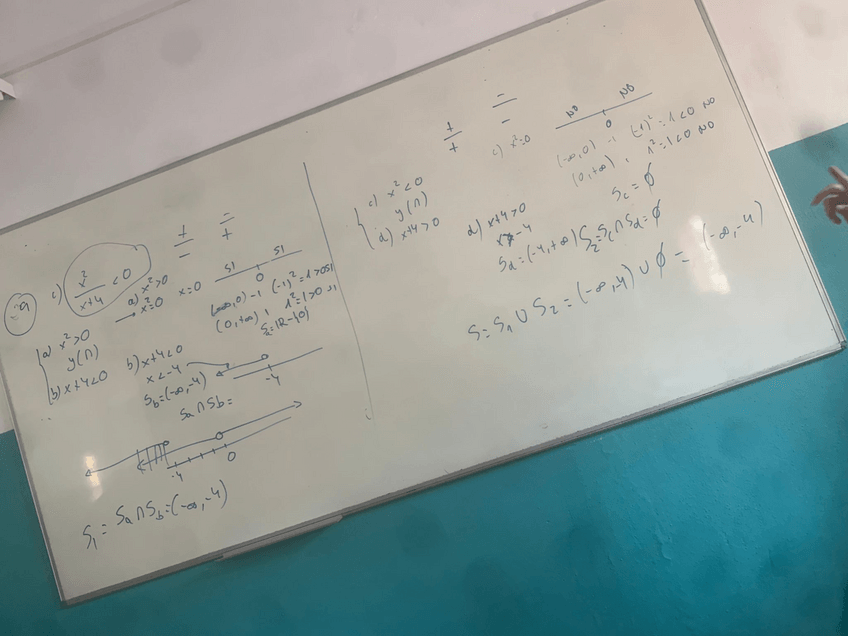 c) x²/(x+4) < 0
+/− −/+
{ a) x²>0
y(∩)
b) x+4<0
a) x²>0
x²=0 x=0
SI SI
0
(-∞,0) -1 (-1)²=1>0 SI
(0,+∞) 1 1²=1>0 SI
b) x+4<0
x<-4
-4
S_b=(-∞,-4)
S_a∩S_b=
-4 0
S₁= S_a∩S_b=(-∞,-4)
+/+ −/−
{ c) x²<0
y(∩)
d) x+4>0
c) x²=0
NO NO
0
(-∞,0) -1 (-1)²=1<0 NO
(0,+∞) 1 1²=1<0 NO
S_c=∅
d) x+4>0
S_d=(-4,+∞) S₂=S_c∩S_d=∅
S=S₁∪S₂=(-∞,-4)∪∅=(-∞,-4)